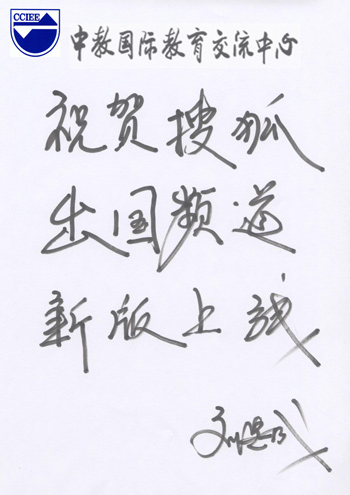 CCIEE
中教国际教育交流中心
祝贺搜狐
出国频道
新版上线